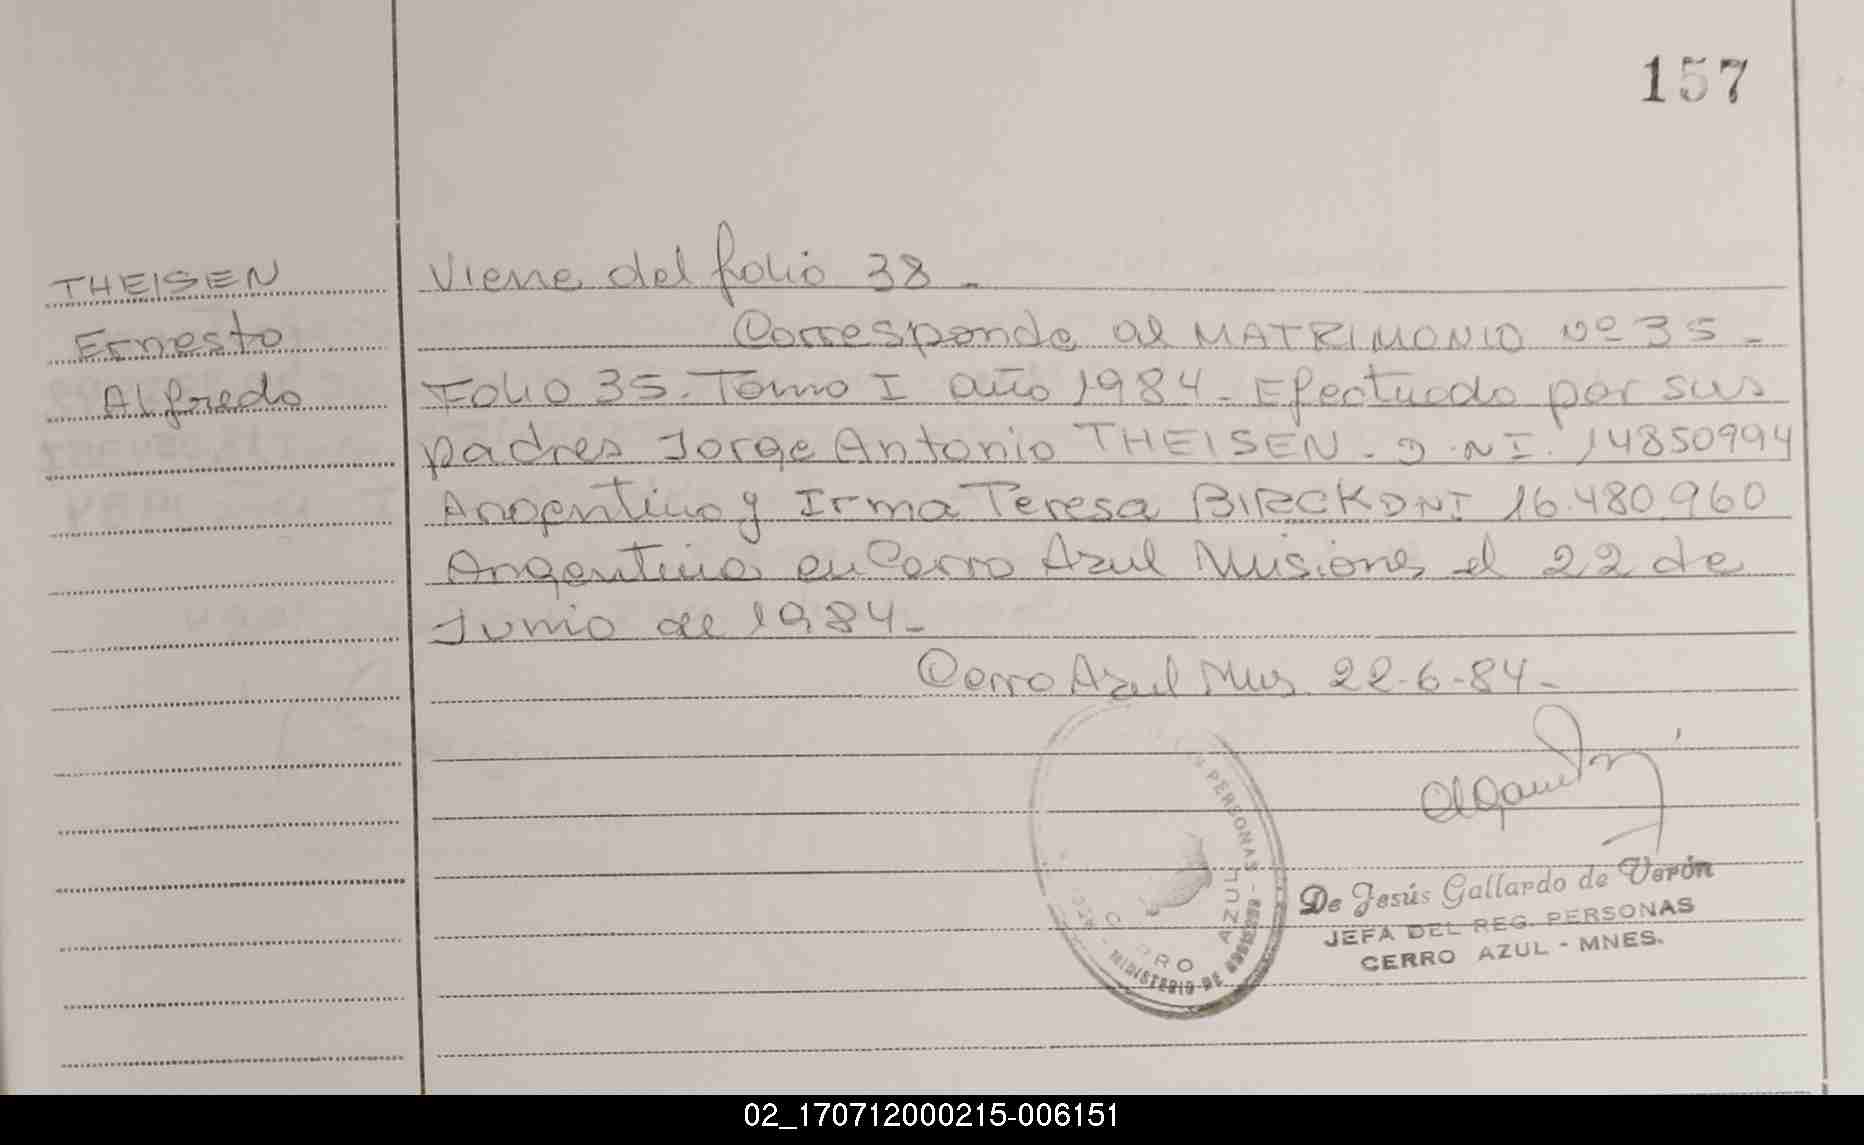 157
THEISEN
Ernesto
Alfredo
Viene del folio 38 -
Corresponde al MATRIMONIO Nº 35 -
Folio 35. Tomo I año 1984 - Efectuado por sus
padres Jorge Antonio THEISEN - D.NI. 14850994
Argentino y Irma Teresa BIRCK DNI 16.480.960
Argentina en Cerro Azul Misiones el 22 de
Junio de 1984 -
Cerro Azul Mns 22-6-84 -
PERSONAS
AZUL
MINISTERIO DE
De Jesús Gallardo de Verón
JEFA DEL REG. PERSONAS
CERRO AZUL - MNES.
02_170712000215-006151